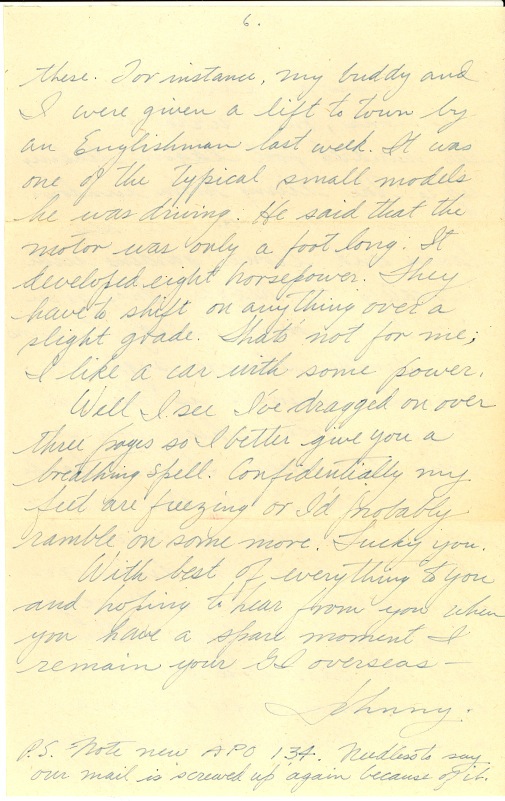 6.
these. For instance, my buddy and
I were given a lift to town by
an Englishman last week. It was
one of the typical small models
he was driving. He said that the
motor was only a foot long. It
developed eight horsepower. They
have to shift on anything over a
slight grade. Thats not for me;
I like a car with some power.
Well I see I've dragged on over
three pages so I better give you a
breathing spell. Confidentially my
feet are freezing or I'd probably
ramble on some more. Lucky you.
With best of everything to you
and hoping to hear from you when
you have a spare moment I
remain your GI overseas –
Johnny.
P.S. Note new APO 134. Needless to say
our mail is screwed up again because of it.